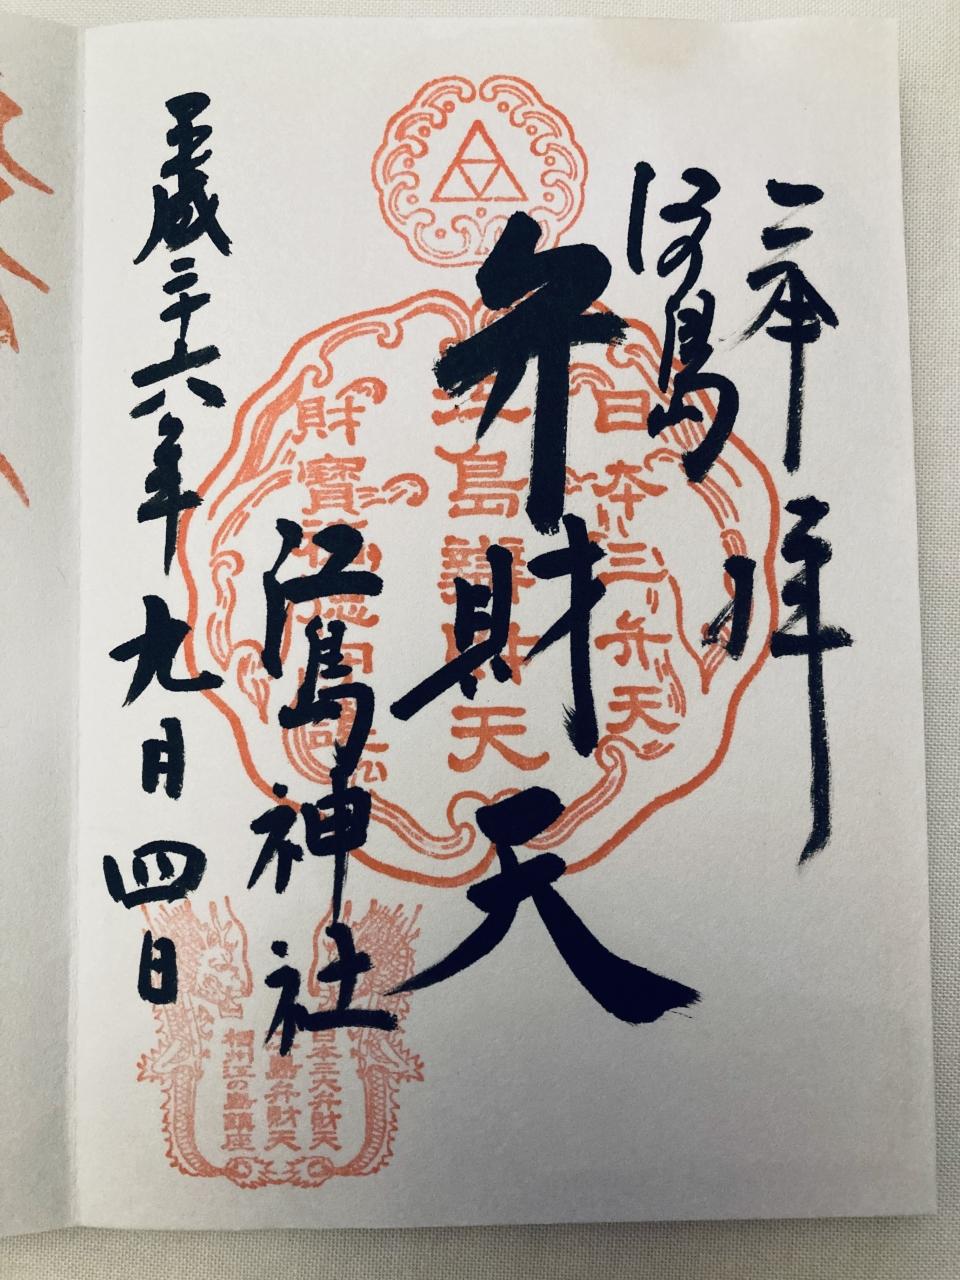 奉拝
江島
弁財天
江島神社
平成二十六年九月四日
日本三弁天
江島辨財天
財寶
日本三大弁財天
島弁財天
相州江の島鎮座